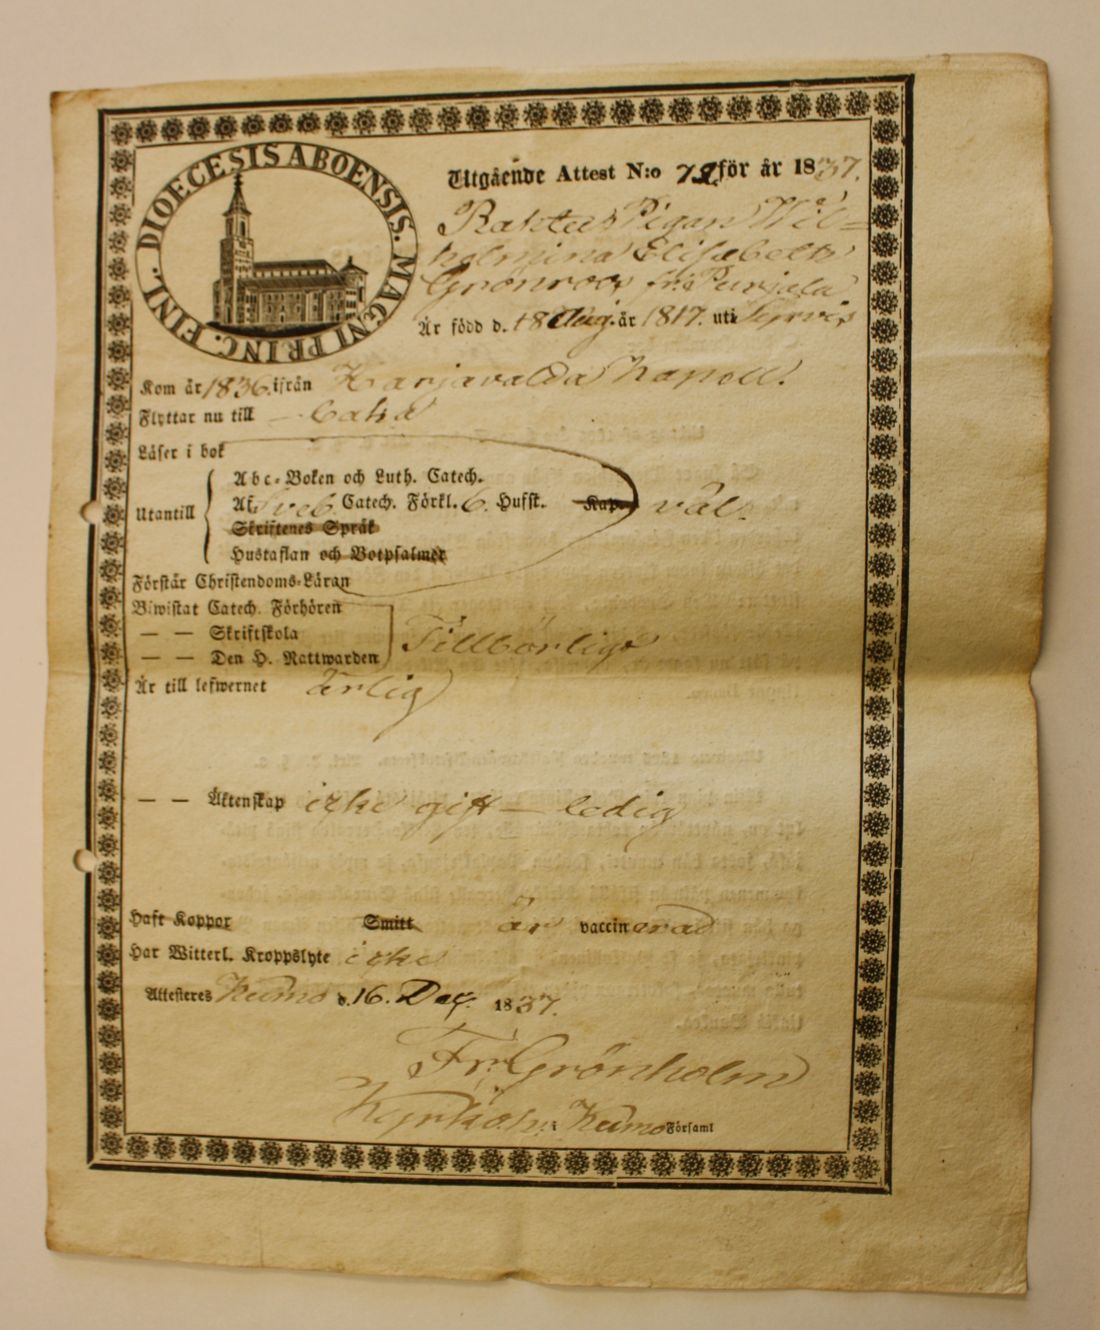 DIOECESIS ABOENSIS. MAGNI PRINC. FINL.
Utgående Attest N:o 72 för år 1837.
Pigan Wil=
helmina Elisabeth
Grönroos fr: Purjala
Är född d. 18 Aug. år 1817. uti
Kom år 1836. ifrån Harjavalda Kapell.
Flyttar nu till
Läser i bok
Utantill
Abc-Boken och Luth. Catech.
Af Sveb. Catech. Förkl. 6. Hufst. Kap. väl.
Skriftenes Språk
Hustaflan och Botpsalmer
Förstår Christendoms-Läran
Biwistat Catech. Förhören
— — Skriftskola Tillbörligt
— — Den H. Nattwarden
Är till lefwernet ärlig
— — Äktenskap icke gift — ledig
Haft Koppor Smitt är vaccinerad
Har Witterl. Kroppslyte icke
Attesteres Kumo d. 16. Dec. 1837.
Fr: Grönholm
Kyrkoh: i Kumo Församl